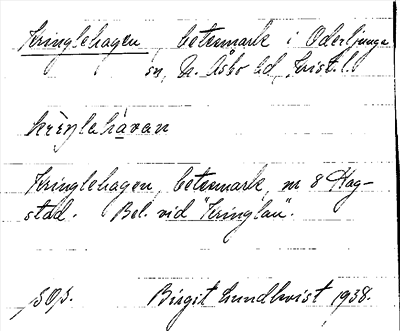 Kringlehagen, betesmark i Oderljunga
sn, N. Åsbo hd, Krist. l.
kriŋlehāvan
Kringlehagen, betesmark, nr 8 Hag-
stad. Bel. vid "Kringlan".
Birgit Lundkvist 1938.